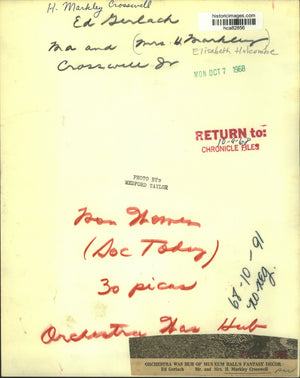 H. Markley Crosswell
Ed Gerlach
historicimages.com
hca62856
Mr and (Mrs. H Markley)
Elisabeth Holcombe
Crosswell Jr
MON OCT 7 1968
RETURN to:
10-9-68
CHRONICLE FILES
PHOTO BY:
MEXFORD TAYLOR
(Doc Today)
30 picas
68-10-91
no neg.
Orchestra Was Hub
ORCHESTRA WAS HUB OF MUSEUM BALL'S FANTASY DECOR
Ed Gerlach Mr. and Mrs. H. Markley Crosswell